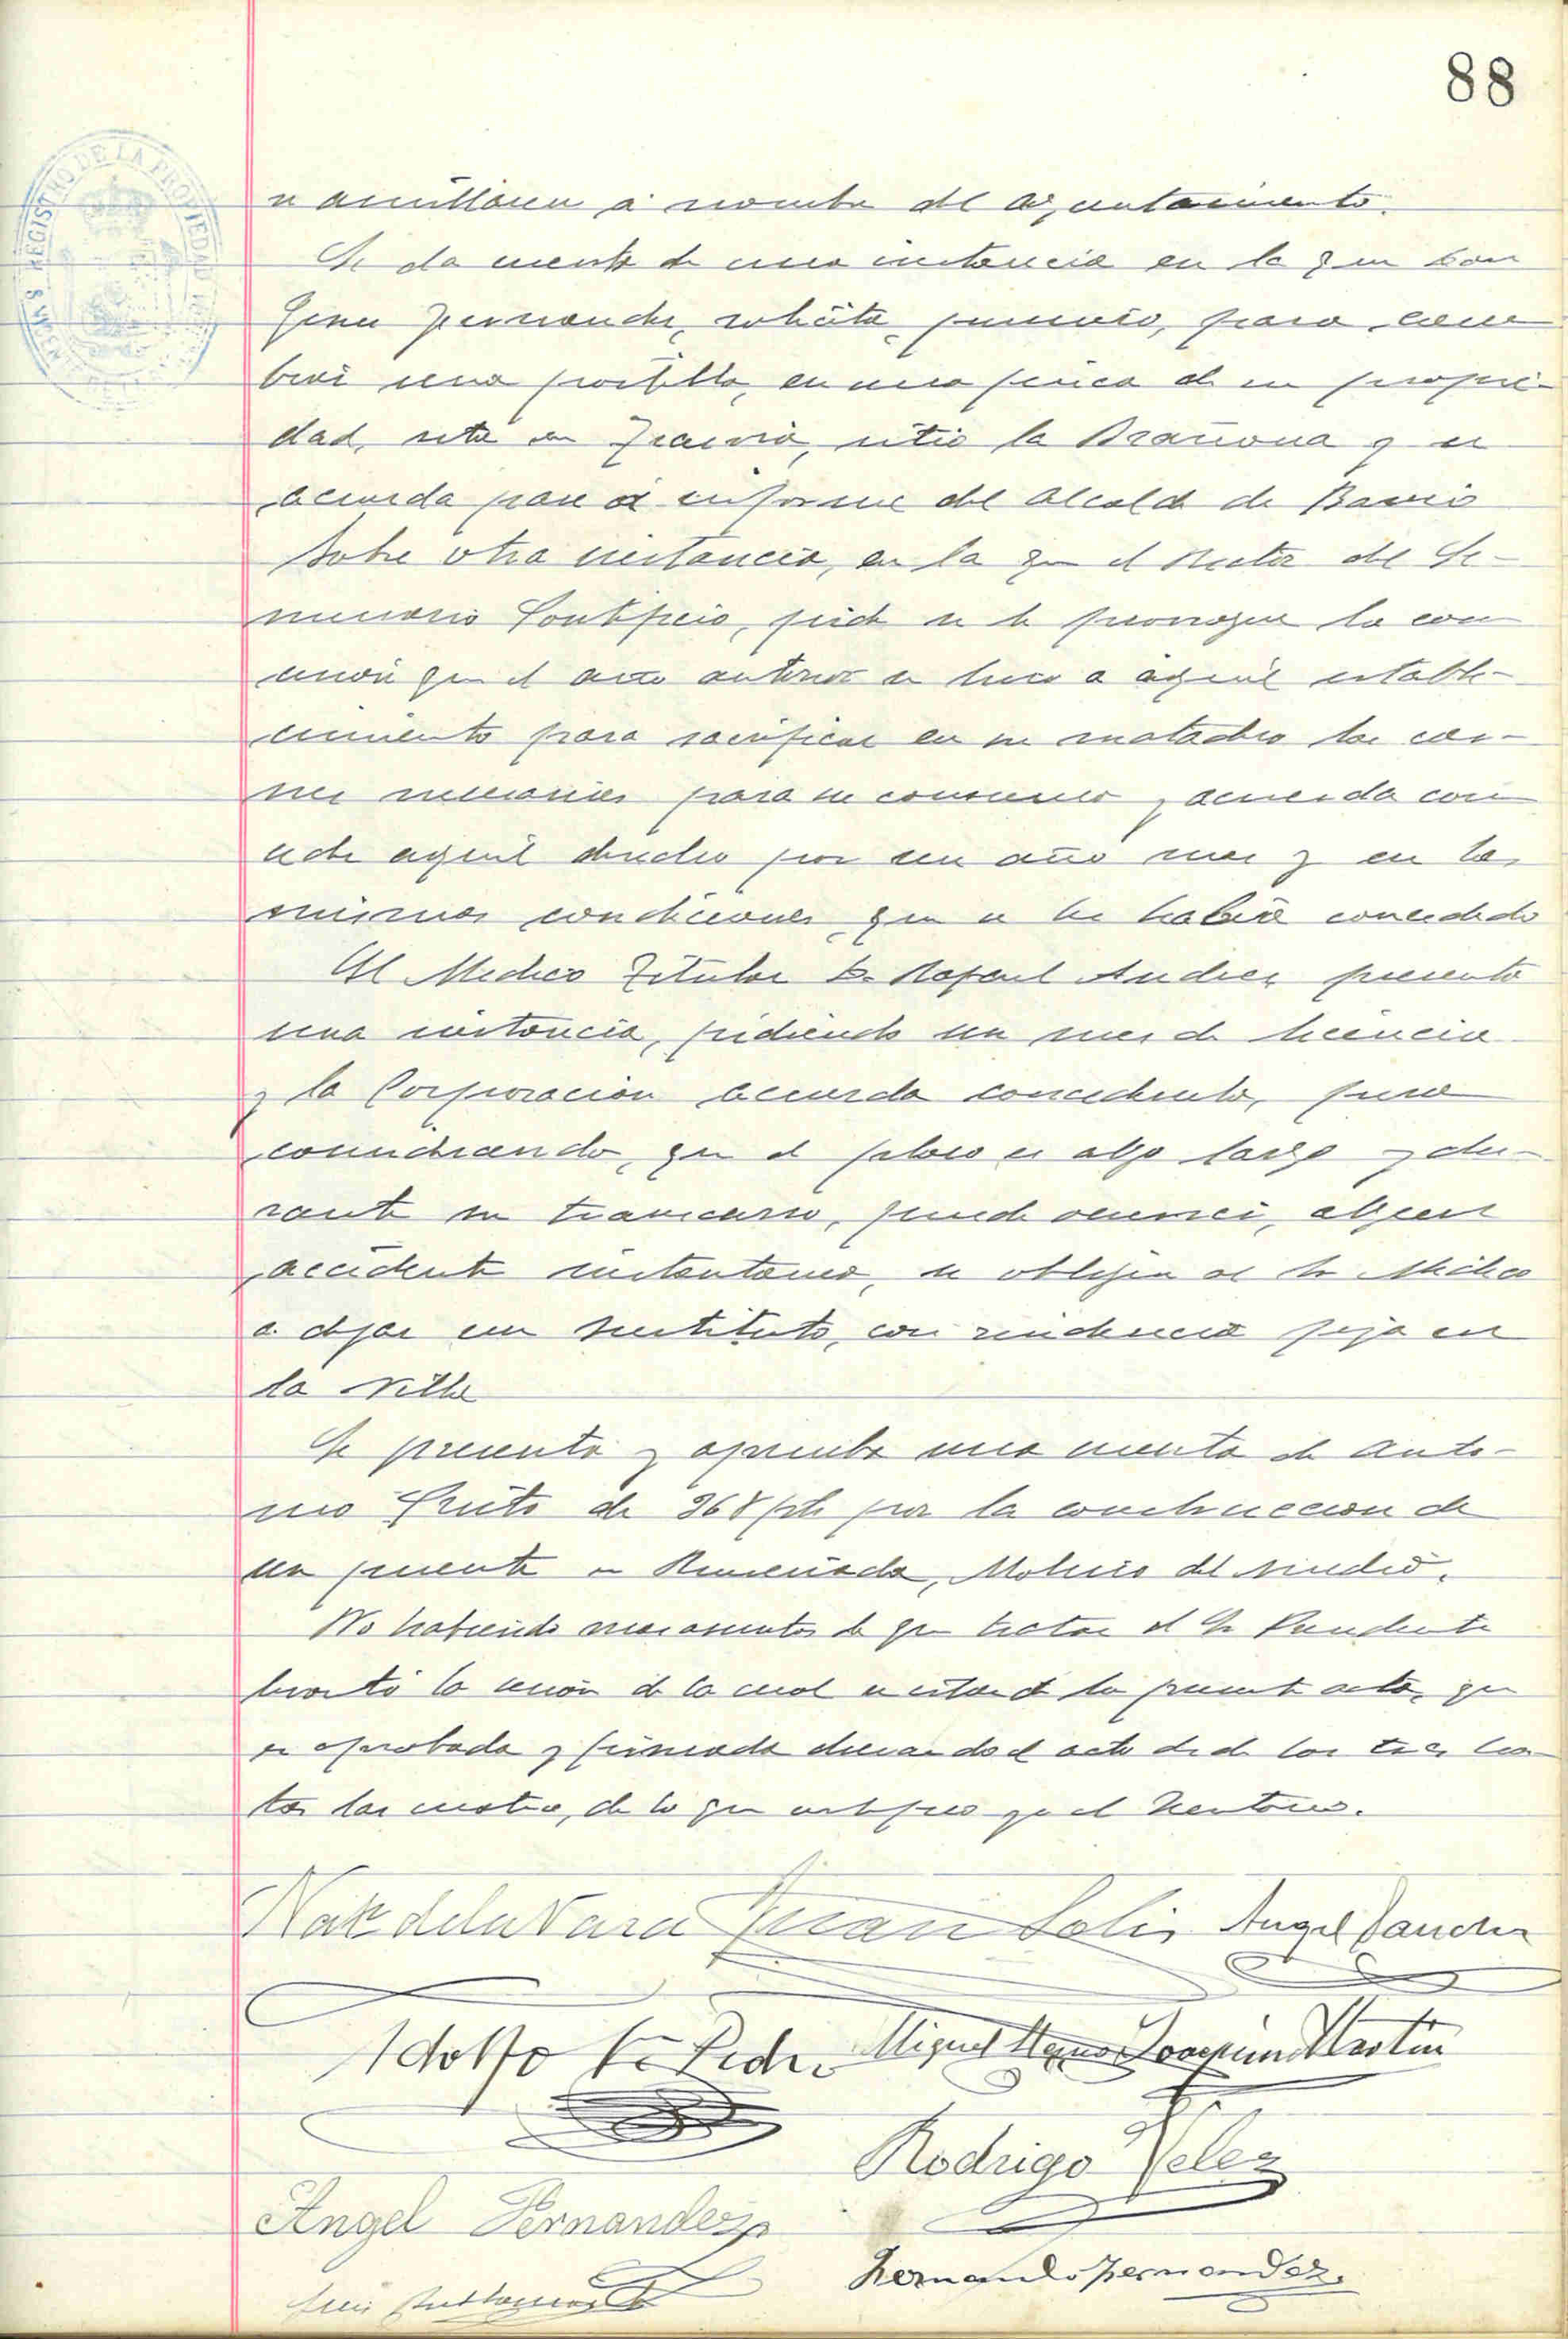 88
REGISTRO DE LA PROPIEDAD
se amillaren á nombre del Ayuntamiento.
Se da cuenta de una instancia en la que
Fernandez, solicita permiso, para
brir una portilla, en una finca de su propie-
dad, sita en sitio la Brañona y se
acuerda pase a informe del Alcalde de Barrio
Sobre otra instancia, en la que el Rector del Se-
minario Pontificio, pide se le prorrogue la con
cesión que el año anterior se hizo a aquel estable-
cimiento para sacrificar en su matadero las car-
nes necesarias para su consumo y acuerda con
ceder aquel derecho por un año mas y en las
mismas condiciones que se les había concedido
El Medico Titular D. Rafael Andres presenta
una instancia, pidiendo un mes de licencia
y la Corporacion acuerda concederle, pero
considerando, que el plazo es algo largo y du-
rante su transcurso, puede ocurrir, algun
accidente instantaneo, se obligue al Sr Médico
a dejar un sustituto, con residencia fija en
la Villa
Se presenta y aprueba una cuenta de Anto-
nio de 368 pts por la construccion de
un puente en Molino del
No habiendo mas asuntos de que tratar el Sr Presidente
levantó la sesión de la cual se extiende la presente acta, que
es aprobada y firmada durando el acto desde las tres has-
ta las cuatro, de lo que certifico yo el Secretario.
de la Vara Juan Solis Angel Sanchez
Adolfo Miguel Joaquin Martin
Rodrigo Velez
Angel Fernandez
Fernando Fernandez.
Luis